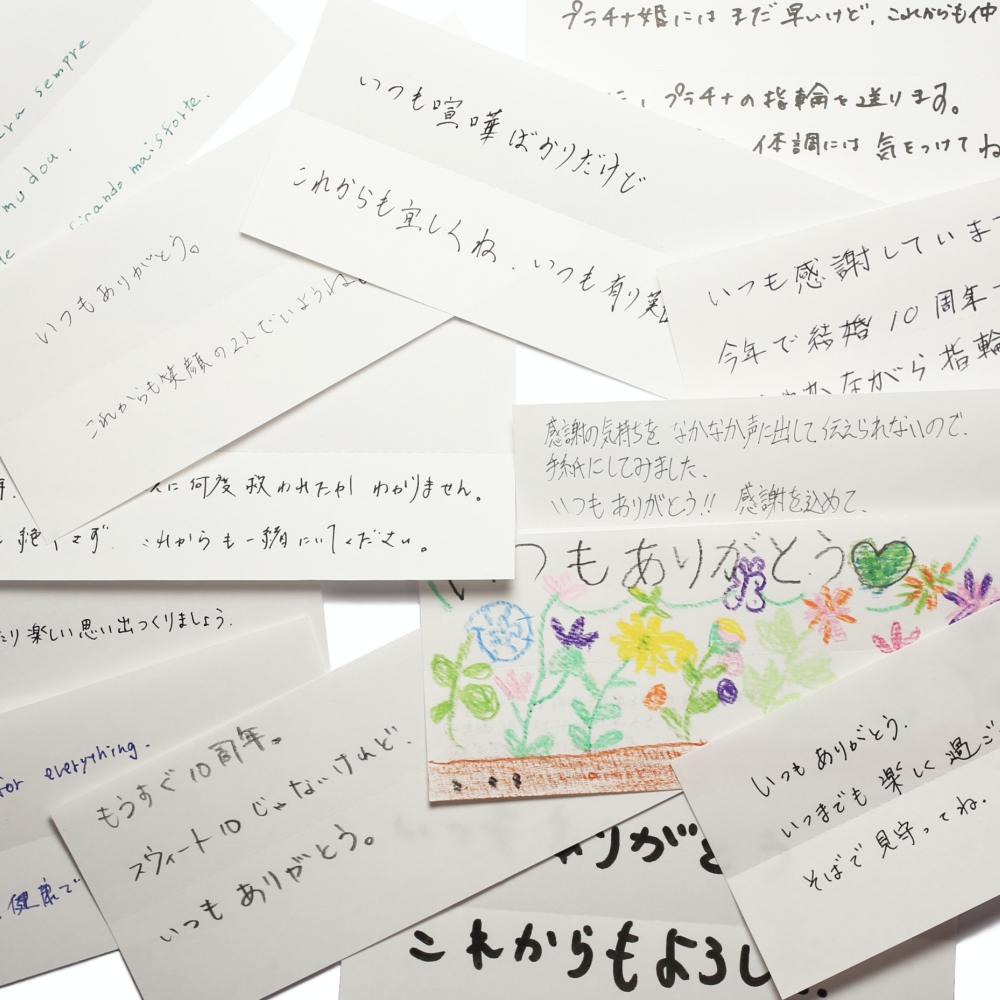 era sempre
mudou.
mais forte.
プラチナ婚にはまだ早いけど、これからも仲
プラチナの指輪を送ります。
体調には気をつけてね
いつも喧嘩ばかりだけど
これからも宜しくね、いつも有り
いつもありがとう。
これからも笑顔の2人でいようね
いつも感謝していま
今年で結婚10周年
ながら指輪
感謝の気持ちを なかなか声に出して伝えられないので、
手紙にしてみました、
いつもありがとう!! 感謝を込めて、
に何度救われたか わかりません。
これからも一緒にいてください。
つもありがとう
楽しい思い出つくりましょう.
for everything.
健康で
もうすぐ10周年。
スウィート10じゃないけれど、
いつもありがとう。
いつもありがとう、
いつまでも楽しく過ご
そばで見守ってね。
りがと
これからもよろし